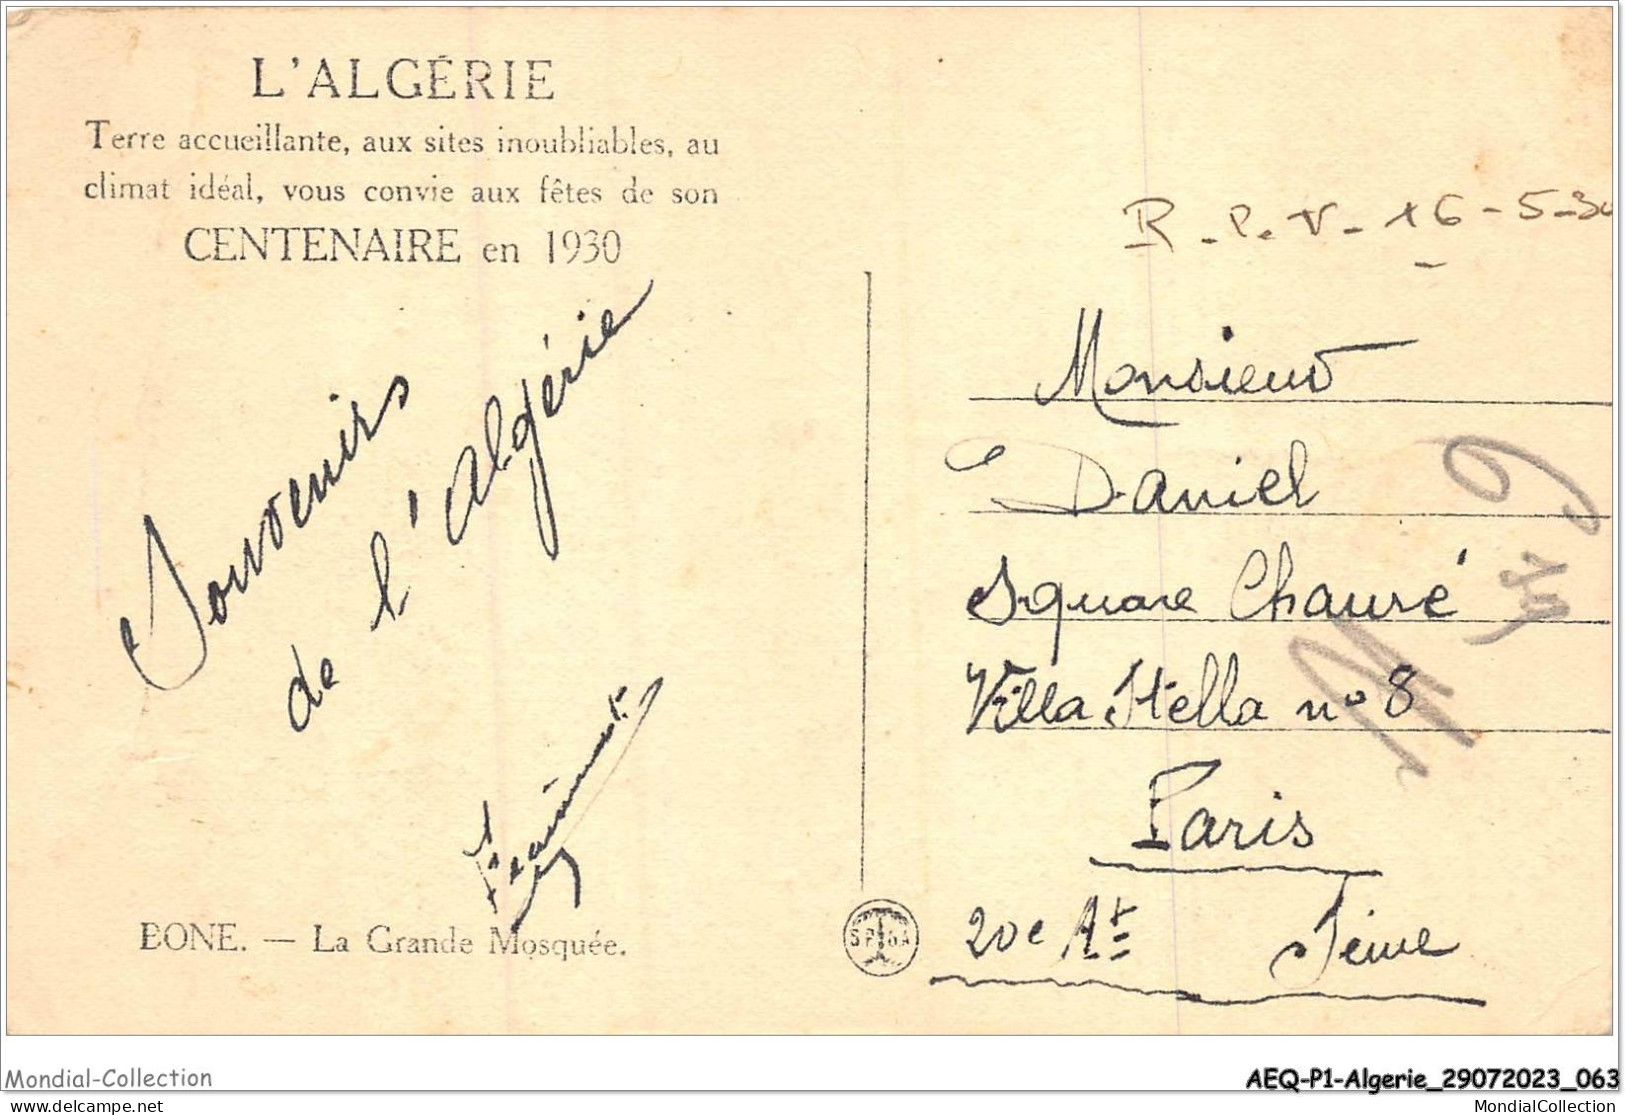 L'ALGÉRIE
Terre accueillante, aux sites inoubliables, au
climat idéal, vous convie aux fêtes de son
CENTENAIRE en 1930
R.P.V. 16-5-30
Souvenirs
de l'Algérie
Monsieur
Daniel
Square Chauré
Villa Stella n° 8
Paris
20e At Seine
BONE. — La Grande Mosquée.
Mondial-Collection
AEQ-P1-Algerie_29072023_063
mondial-collection.com
MondialCollection